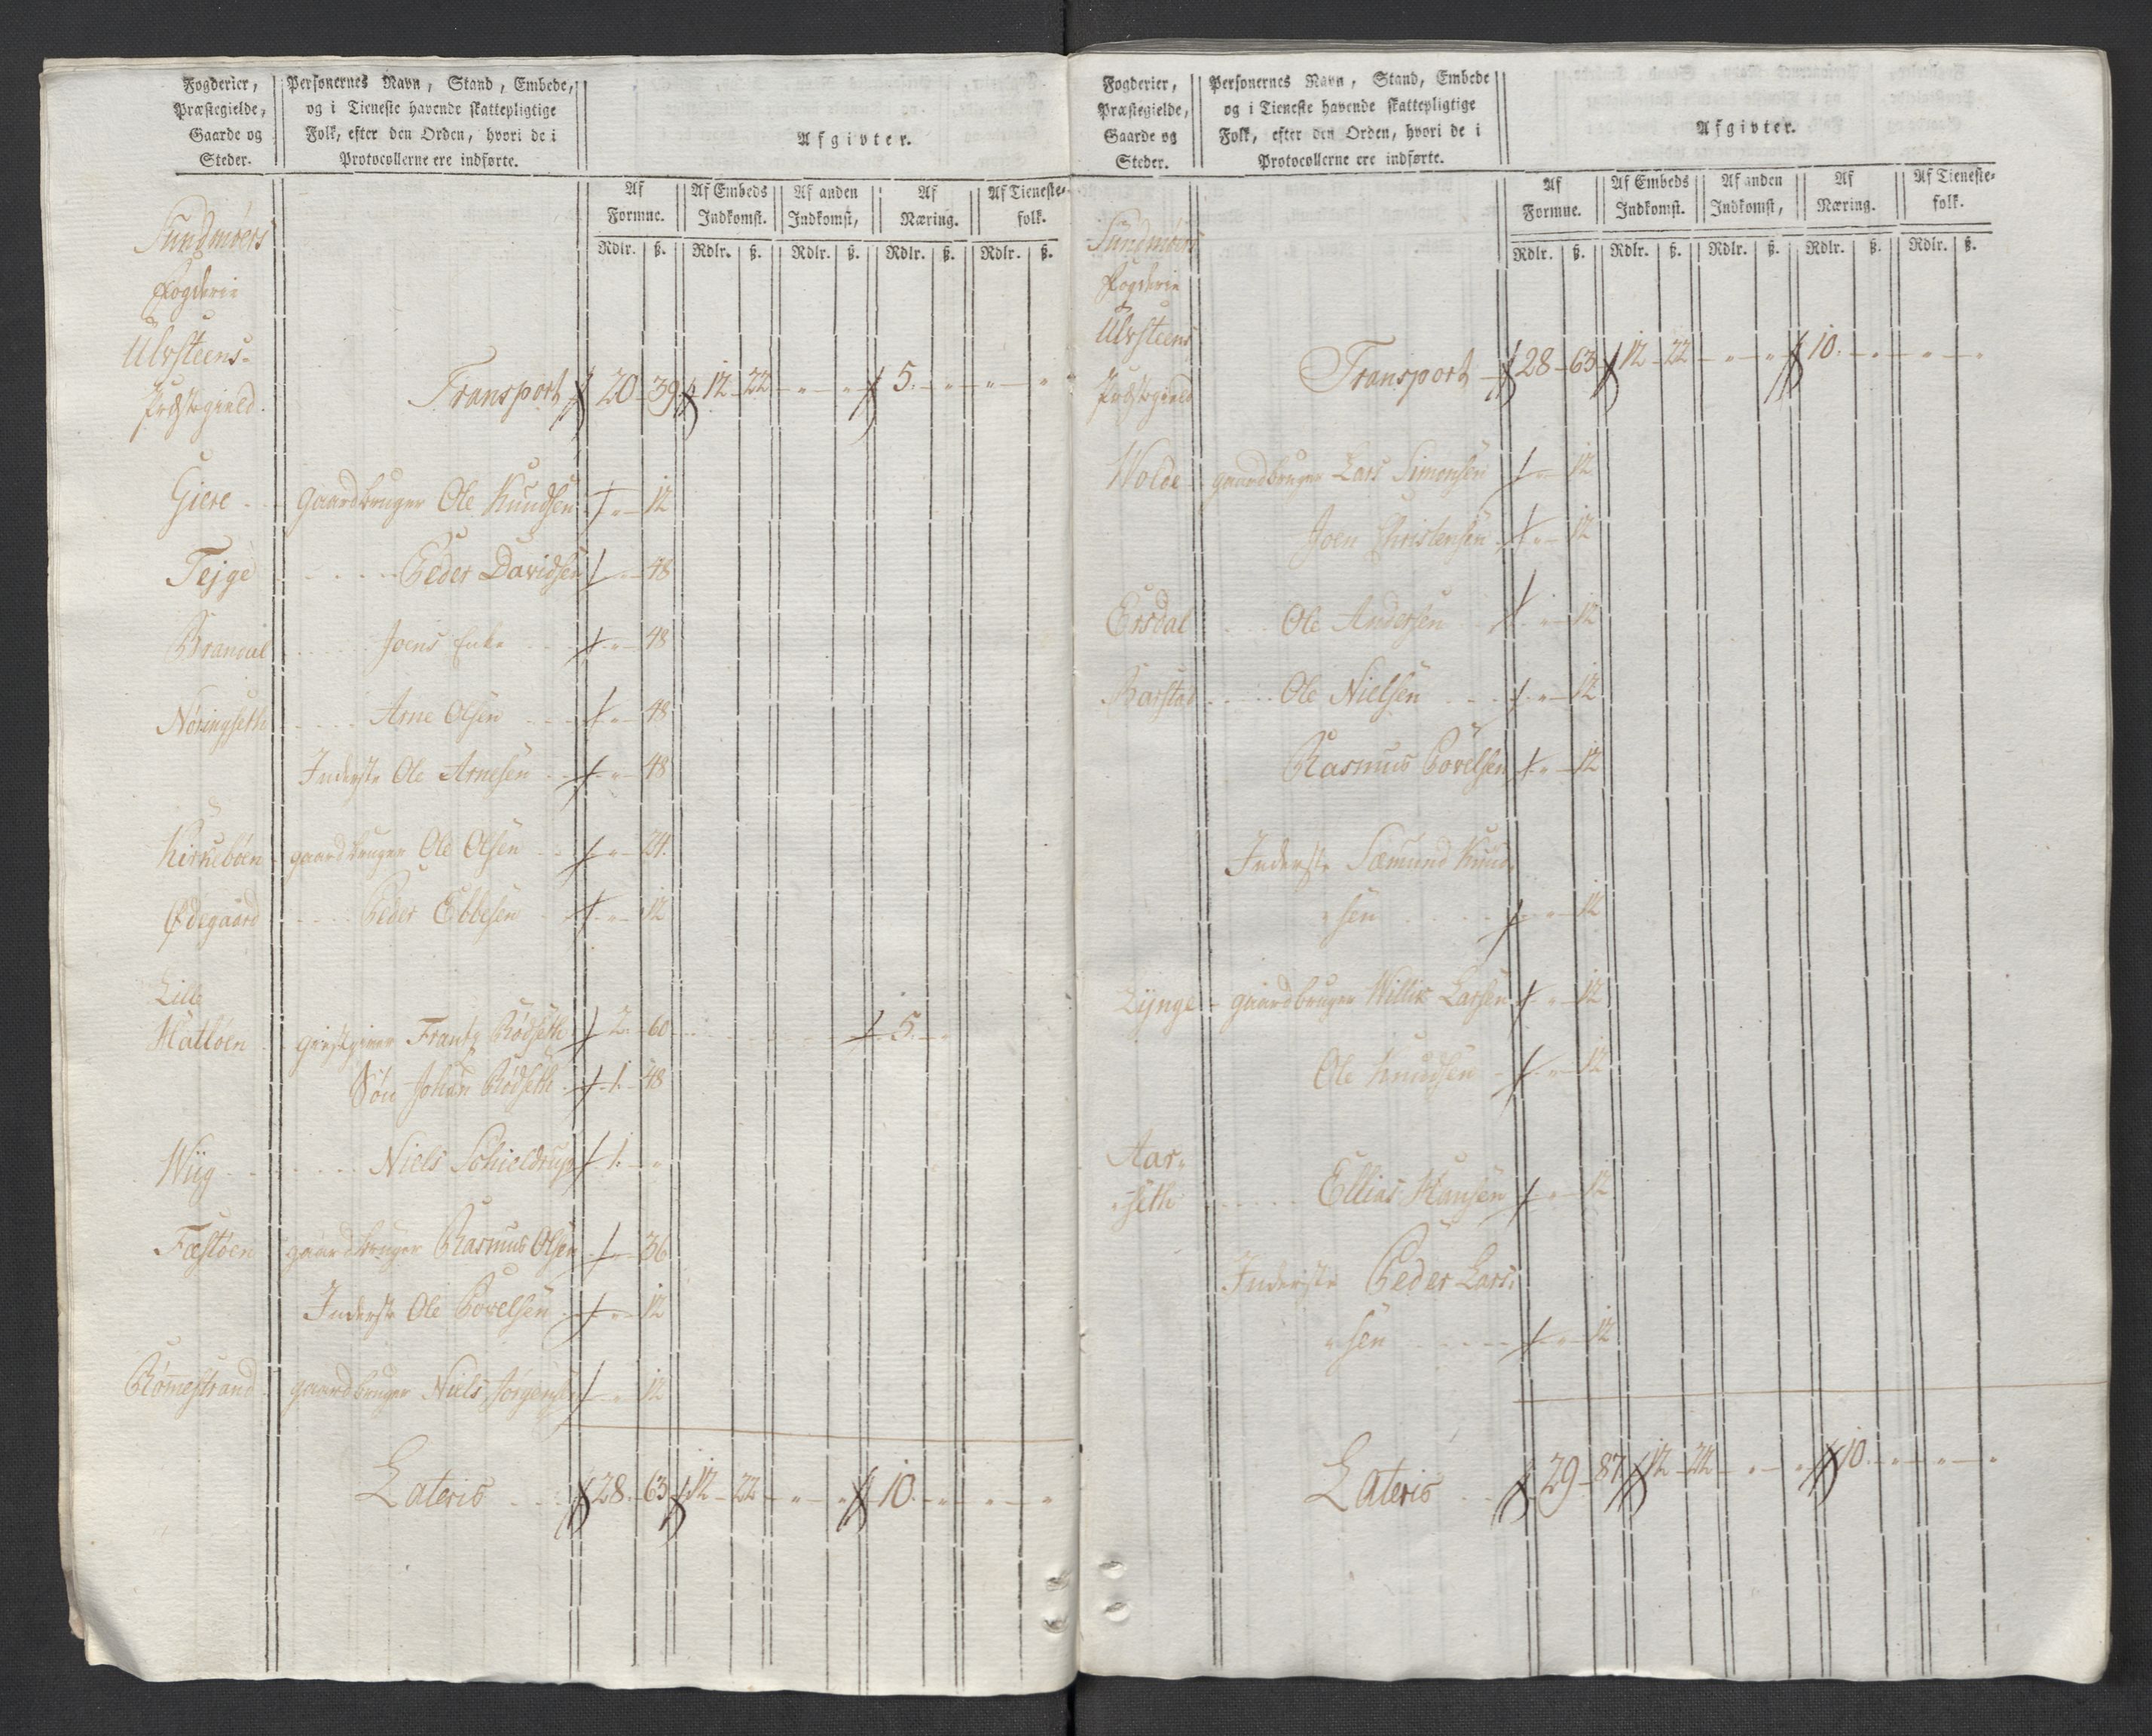 Fogderier,
Præstegielde,
Gaarde og
Steder.
Personernes Navn, Stand, Embede,
og i Tieneste havende skattepligtige
Folk, efter den Orden, hvori de i
Protocollerne ere indførte.
Afgivter.
Af Formue.
Af Embeds Indkomst.
Af anden Indkomst,
Af Næring.
Af Tieneste-folk.
Rdlr. ß. Rdlr. ß. Rdlr. ß. Rdlr. ß. Rdlr. ß.
Sundmøers
Fogderie
Ulvsteens-
Præstegield.
Transport 20 39 12 22 " " 5. " " "
Giere gaardbruger Ole Knudsen " 12
Tejge Peder Davidsen " 48
Brandal Joens Enke " 48
Nøringseth Arne Olsen " 48
Inderste Ole Arnesen " 48
Kirkebøen gaardbruger Ole Olsen " 24.
Ødegaard Peder Ebbesen " 12
Lille
Hatløen giestgiver Frantz Rødseth 2. 60 5. "
Søn Johan Rødseth 1. 48
Wiig Niels Schieldrup 1. "
Fæstøen gaardbruger Rasmus Olsen " 36
Inderste Ole Povelsen " 12
Rømestrand gaardbruger Niels Jørgensen " 12
Lateris 28. 63 12 22 " " 10. " " "
Fogderier,
Præstegielde,
Gaarde og
Steder.
Personernes Navn, Stand, Embede
og i Tieneste havende skattepligtige
Folk, efter den Orden, hvori de i
Protocollerne ere indførte.
Afgivter.
Af Formue.
Af Embeds Indkomst.
Af anden Indkomst,
Af Næring.
Af Tieneste-folk.
Rdlr. ß. Rdlr. ß. Rdlr. ß. Rdlr. ß. Rdlr. ß.
Sundmøers
Fogderie
Ulvsteens
Præstegield
Transport 28 63 12 22 " " 10. " " "
Wolde gaardbruger Lars Simonsen " 12
Joen Christensen " 12
Ersdal Ole Andersen " 12
Barstad Ole Nielsen " 12
Rasmus Povelsen " 12
Inderste Sæmund Knud-
sen " 12
Lynge gaardbruger Willik Larsen " 12
Ole Knudsen " 12
Aar-
seth Ellias Hansen " 12
Inderste Peder Lars-
sen " 12
Lateris 29 87 12 22 " " 10. " " "